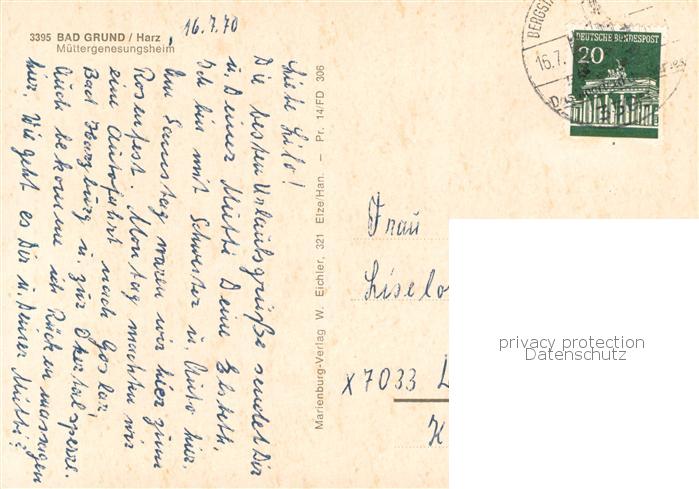 3395 BAD GRUND / Harz
Müttergenesungsheim
16.7.70
Liebe Lilo!
Die besten Urlaubsgrüße sendet Dir
u. Deiner Mutti Deine Elsbeth.
Ich bin mit Schwester u. Auto hier.
Am Samstag waren wir hier zum
Rosenfest. Montag machten wir
eine Autofahrt nach Goslar,
Bad Harzburg u. zur Okertalsperre.
Auch bekomme ich Rückenmassagen
hier. Wie geht es Dir u. Deiner Mutti?
Marienburg-Verlag W. Eichler, 321 Elze/Han. – Pr. 14/FD 306
BERGSTA
16.7.
DEUTSCHE BUNDESPOST
20
Frau
Liselo
x 7033 L
K
privacy protection
Datenschutz